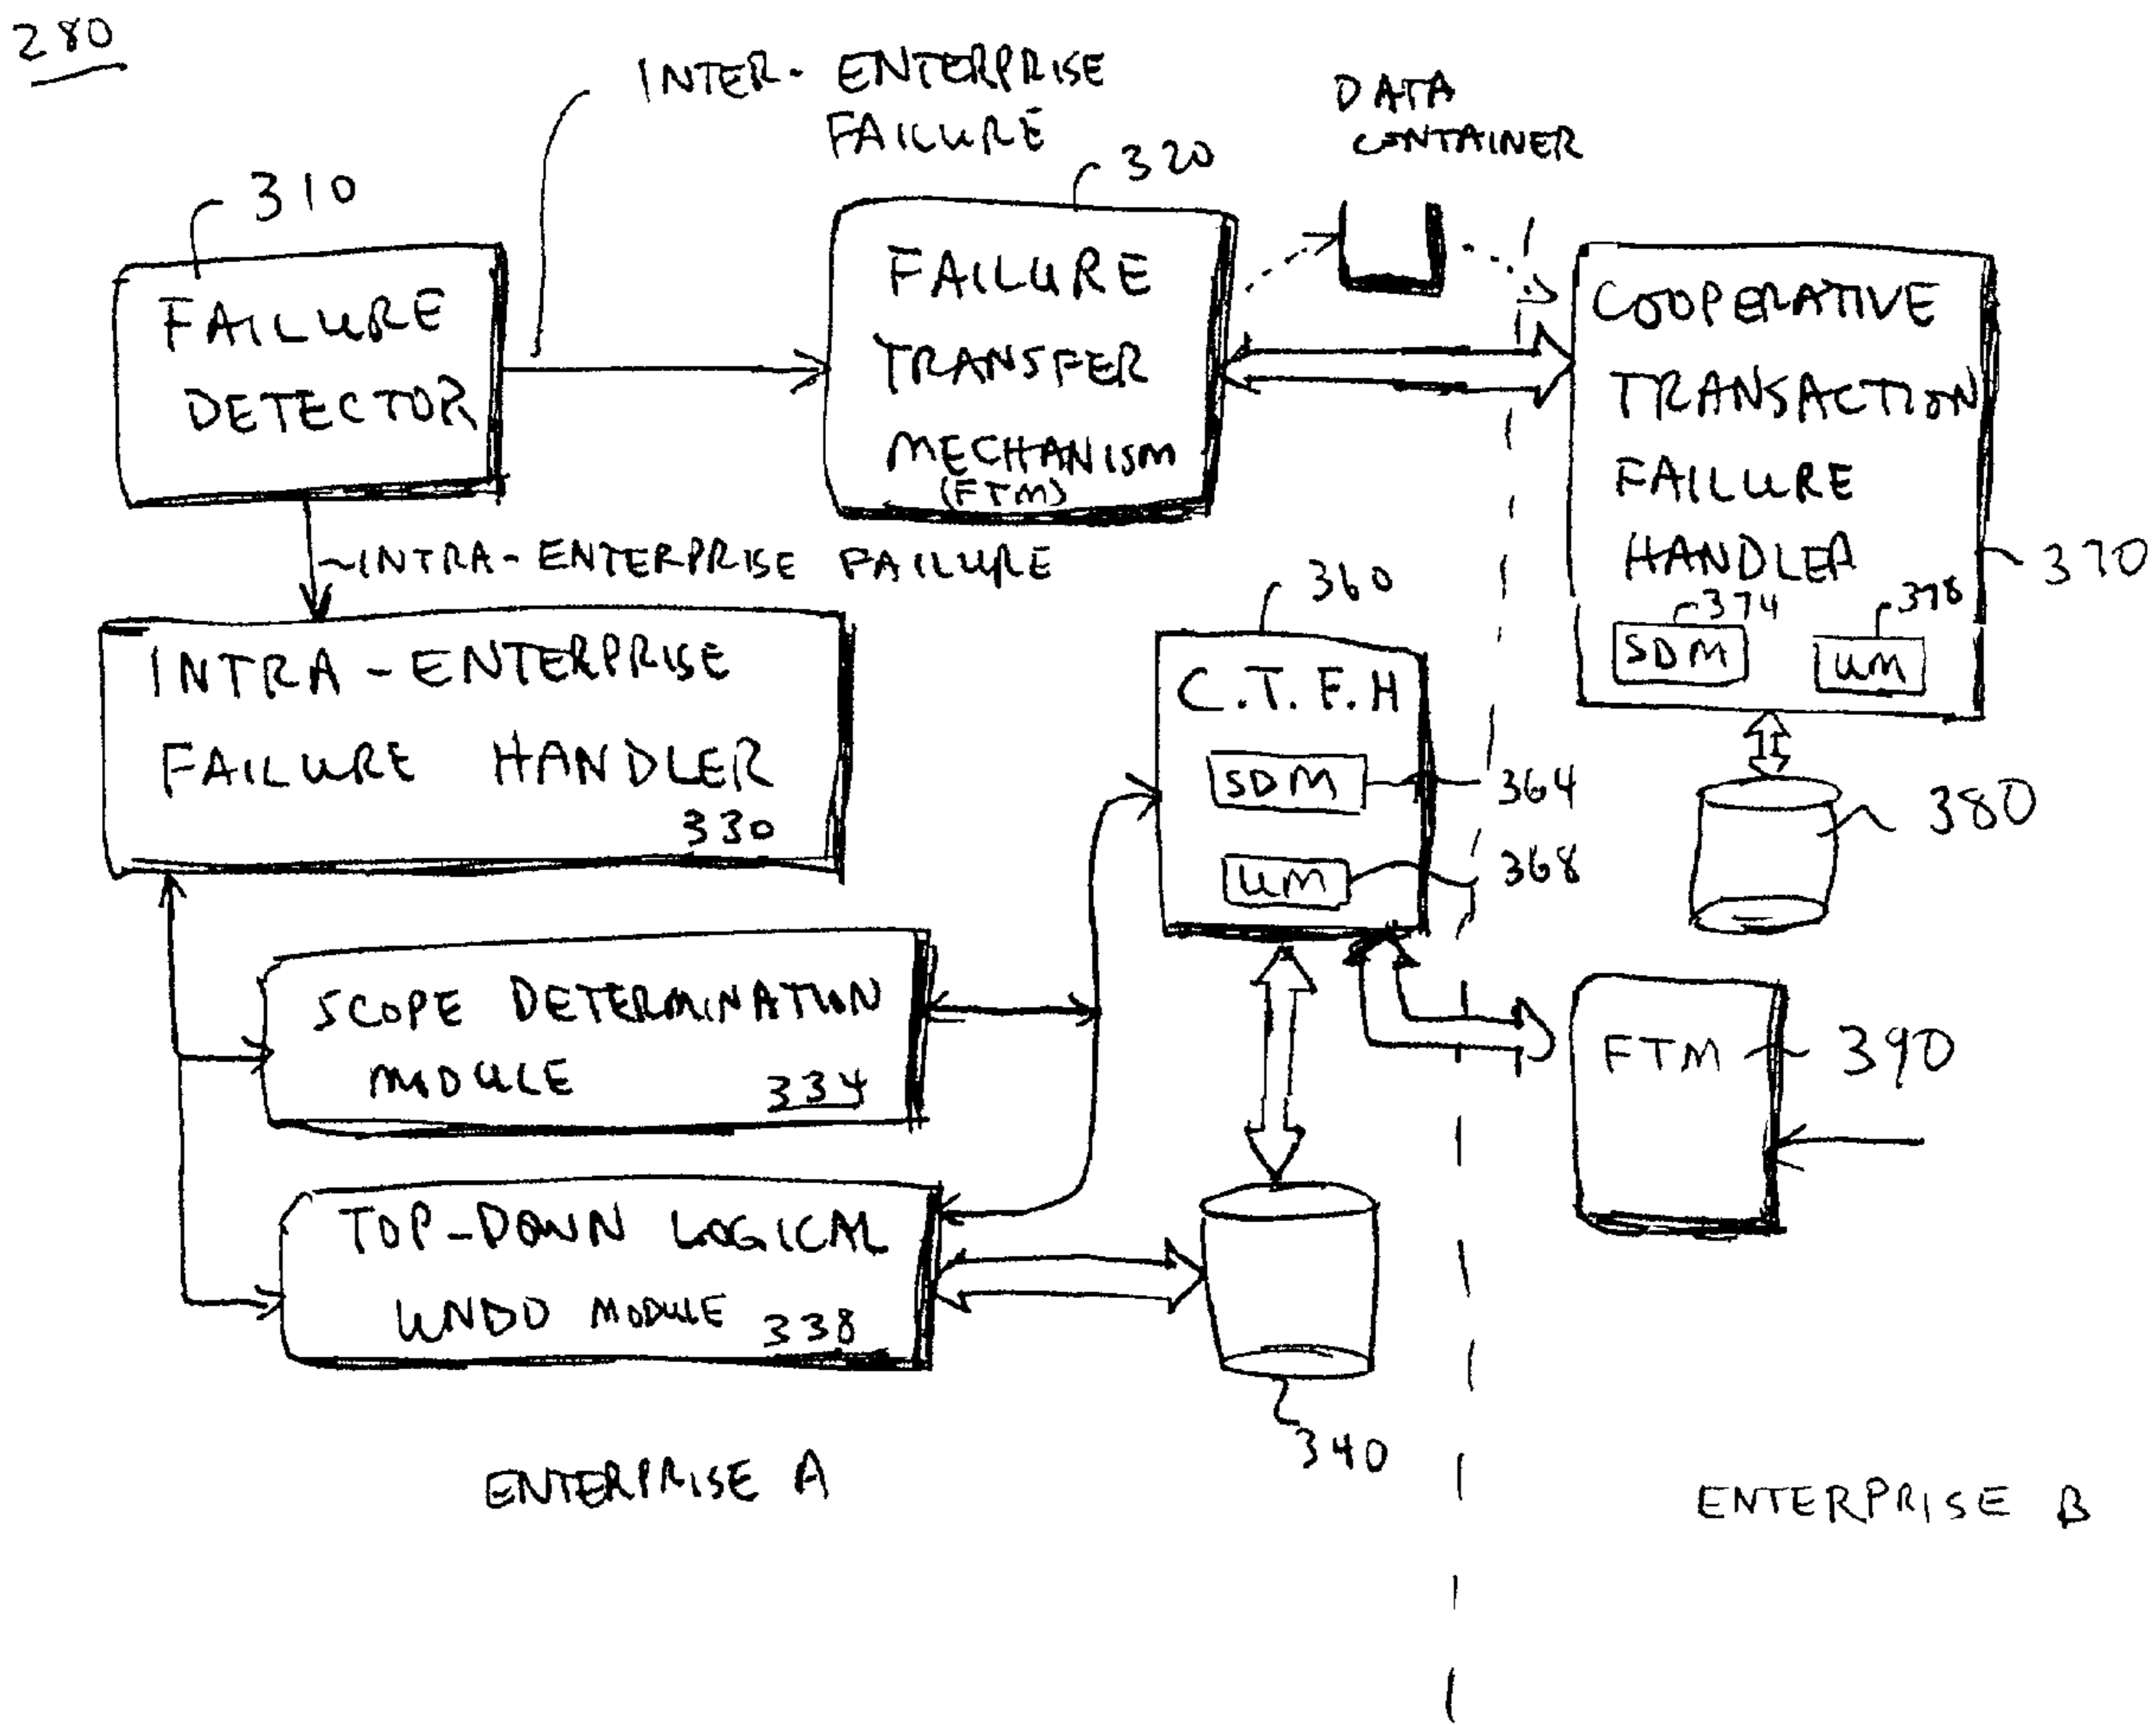 280
INTER-ENTERPRISE
FAILURE
DATA
CONTAINER
310
320
FAILURE
DETECTOR
FAILURE
TRANSFER
MECHANISM
(FTM)
COOPERATIVE
TRANSACTION
FAILURE
HANDLER
370
374
378
SDM
UM
INTRA-ENTERPRISE FAILURE
INTRA-ENTERPRISE
FAILURE HANDLER
330
360
C.T.F.H
SDM
364
UM
368
380
SCOPE DETERMINATION
MODULE 334
FTM
390
TOP-DOWN LOGICAL
UNDO MODULE 338
340
ENTERPRISE A
ENTERPRISE B